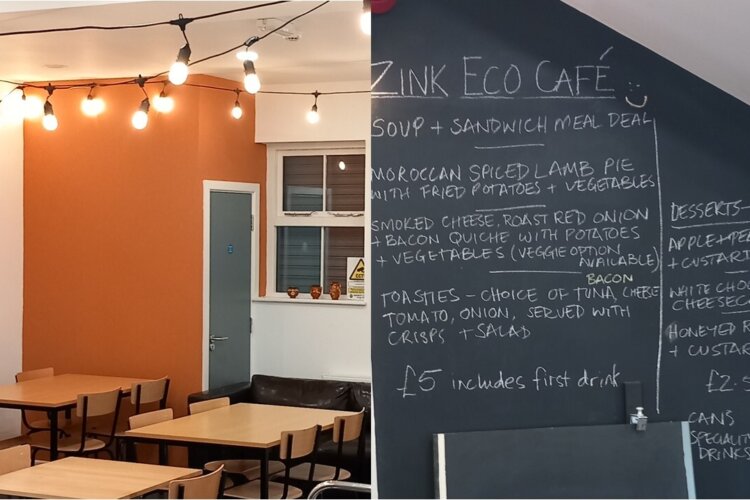 ZINK ECO CAFÉ
SOUP + SANDWICH MEAL DEAL
MOROCCAN SPICED LAMB PIE
WITH FRIED POTATOES + VEGETABLES
SMOKED CHEESE, ROAST RED ONION
+ BACON QUICHE WITH POTATOES
+ VEGETABLES (VEGGIE OPTION
AVAILABLE)
BACON
TOASTIES - CHOICE OF TUNA, CHEESE
TOMATO, ONION, SERVED WITH
CRISPS + SALAD
£5 includes first drink
DESSERTS-
APPLE +
+ CUSTAR
WHITE CHO
CHEESEC
HONEYED R
+ CUSTAR
£2.5
CANS
SPECIALI
DRINKS